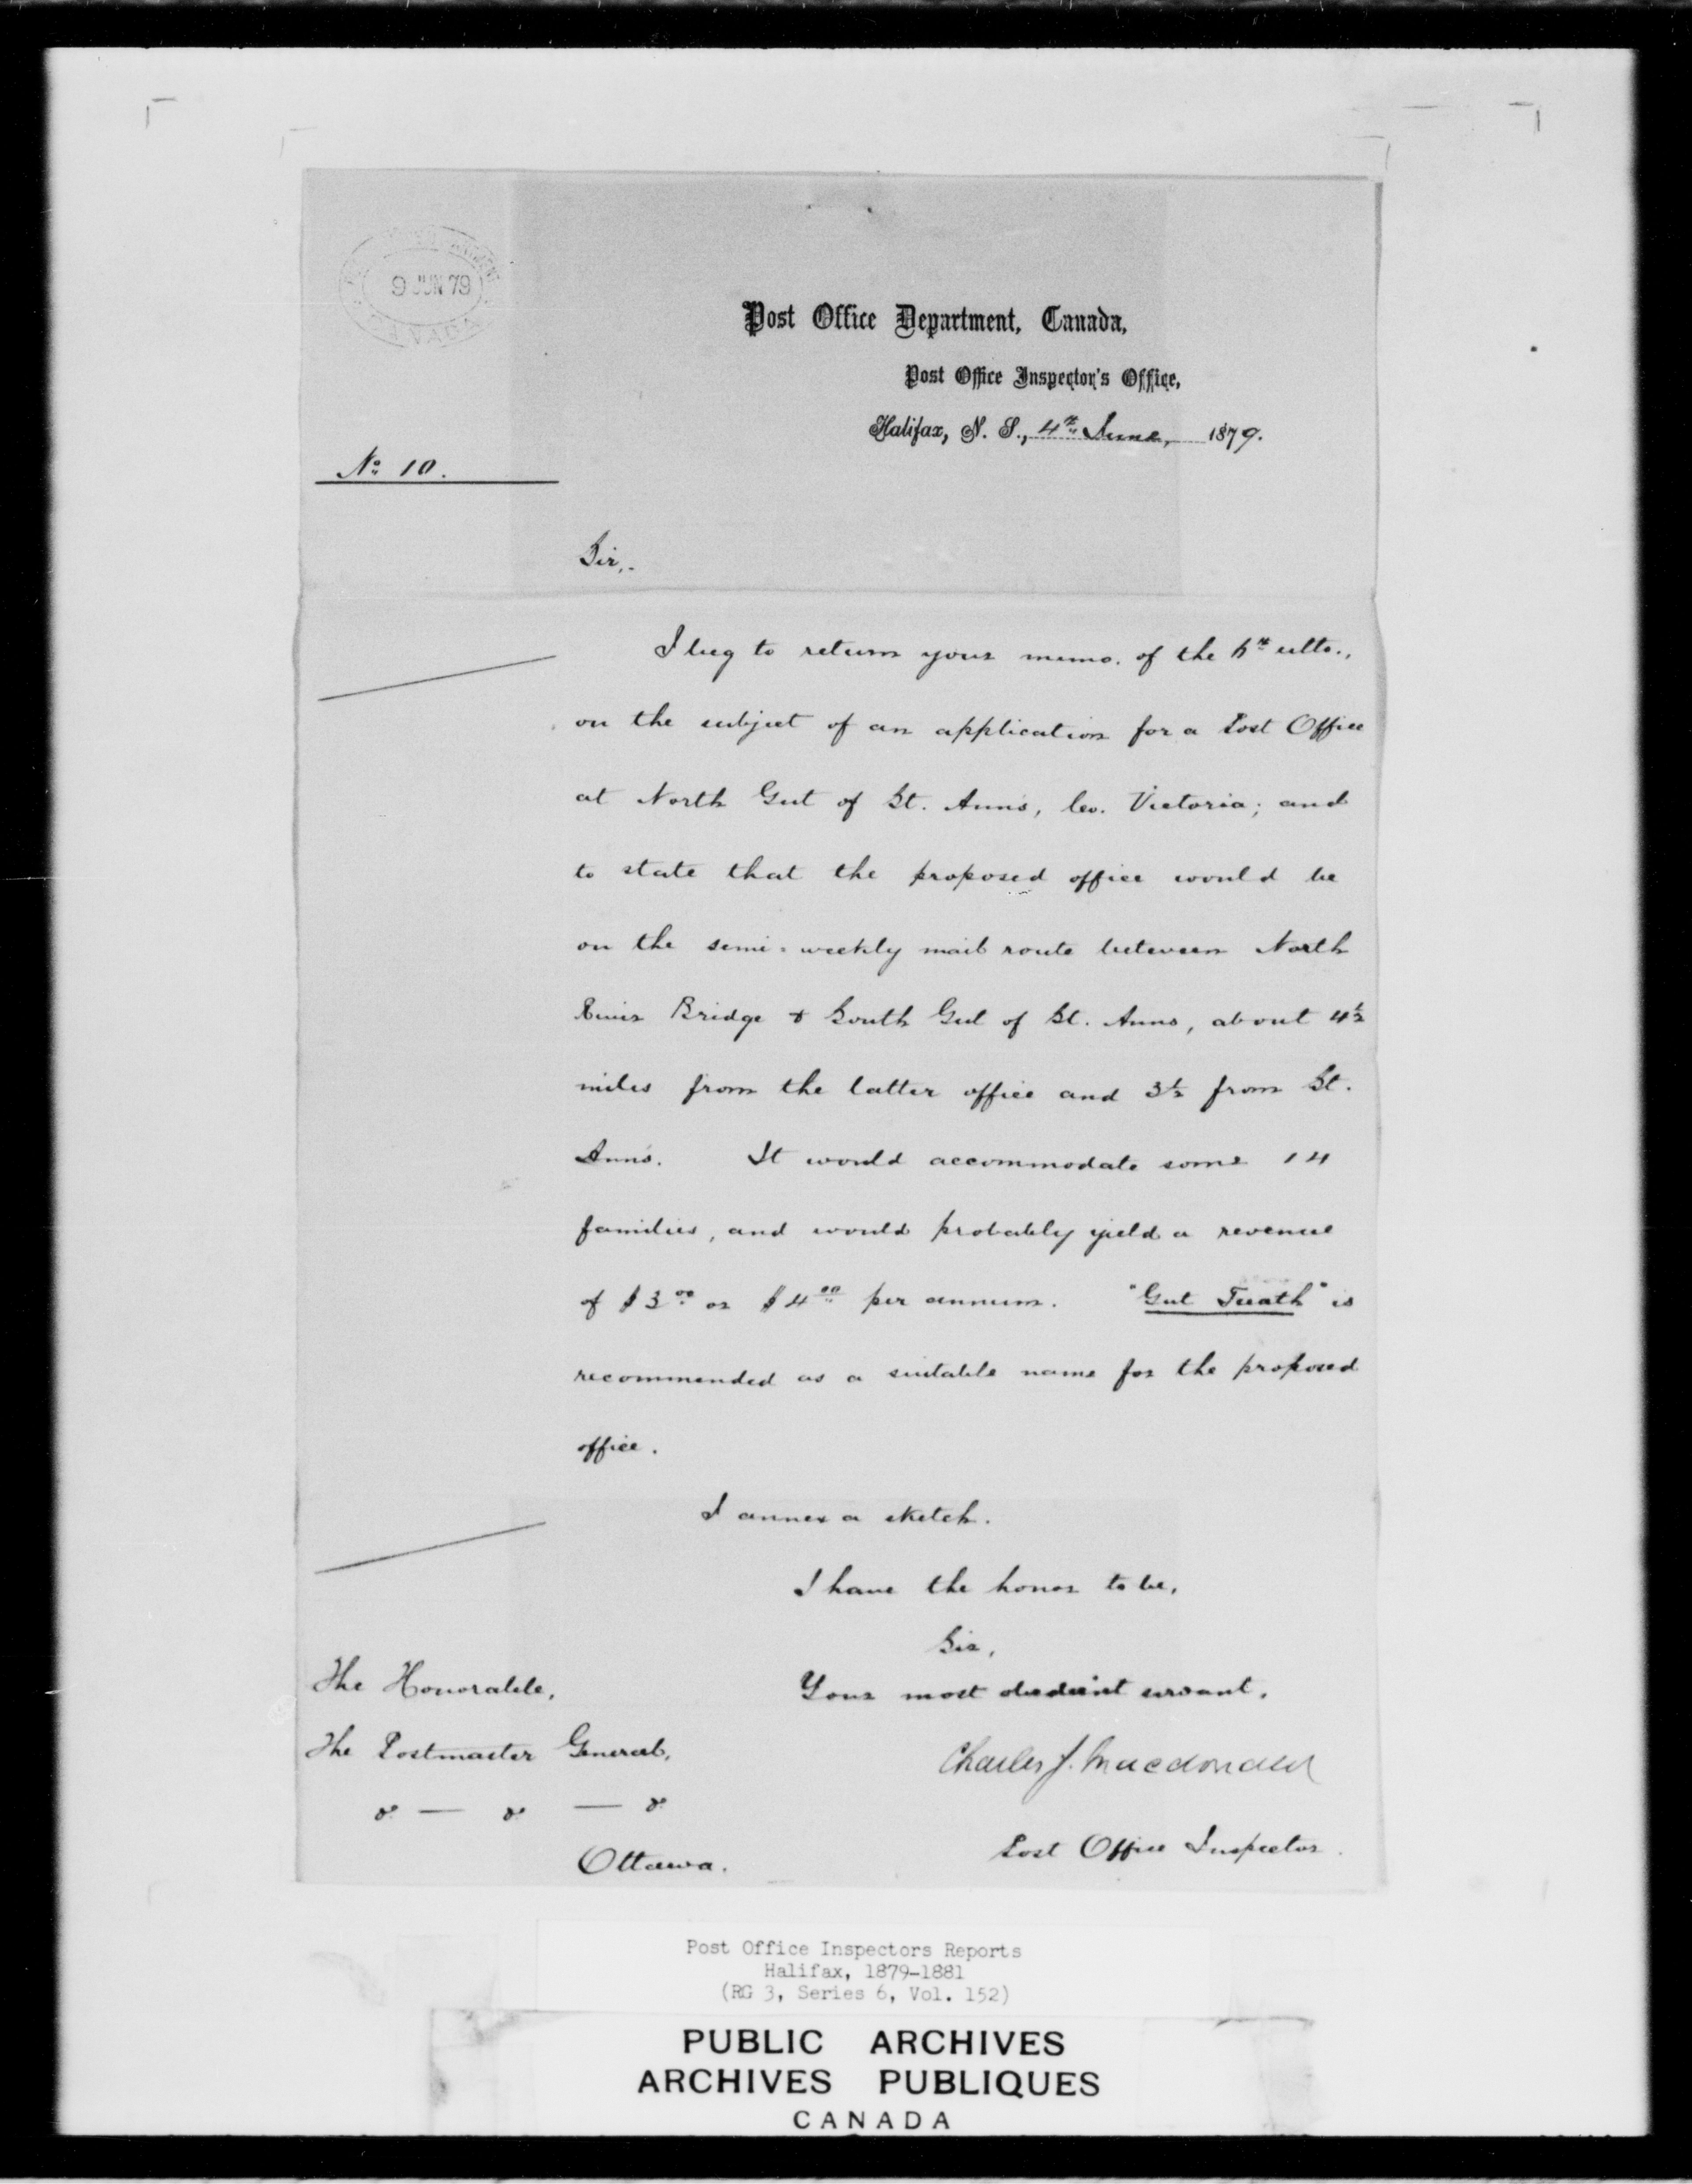 9 JUN 79
CANADA
Post Office Department, Canada,
Post Office Inspector's Office,
Halifax, N. S., 4th June, 1879.
No 10.
Sir,-
I beg to return your memo. of the ulto.,
on the subject of an application for a Post Office
at North Gut of St. Ann's, Co. Victoria; and
to state that the proposed office would be
on the semi-weekly mail route between North
River Bridge & South Gut of St. Anns, about 4½
miles from the latter office and 3½ from St.
Ann's. It would accommodate some 14
families, and would probably yield a revenue
of $3.00 or $4.00 per annum. "Gut Tuath" is
recommended as a suitable name for the proposed
office.
I annex a sketch.
I have the honor to be,
Sir,
Your most obedient servant,
Charles J. Macdonald
Post Office Inspector.
The Honorable,
The Postmaster General,
& — & — &
Ottawa.
Post Office Inspectors Reports
Halifax, 1879-1881
(RG 3, Series 6, Vol. 152)
PUBLIC ARCHIVES
ARCHIVES PUBLIQUES
CANADA